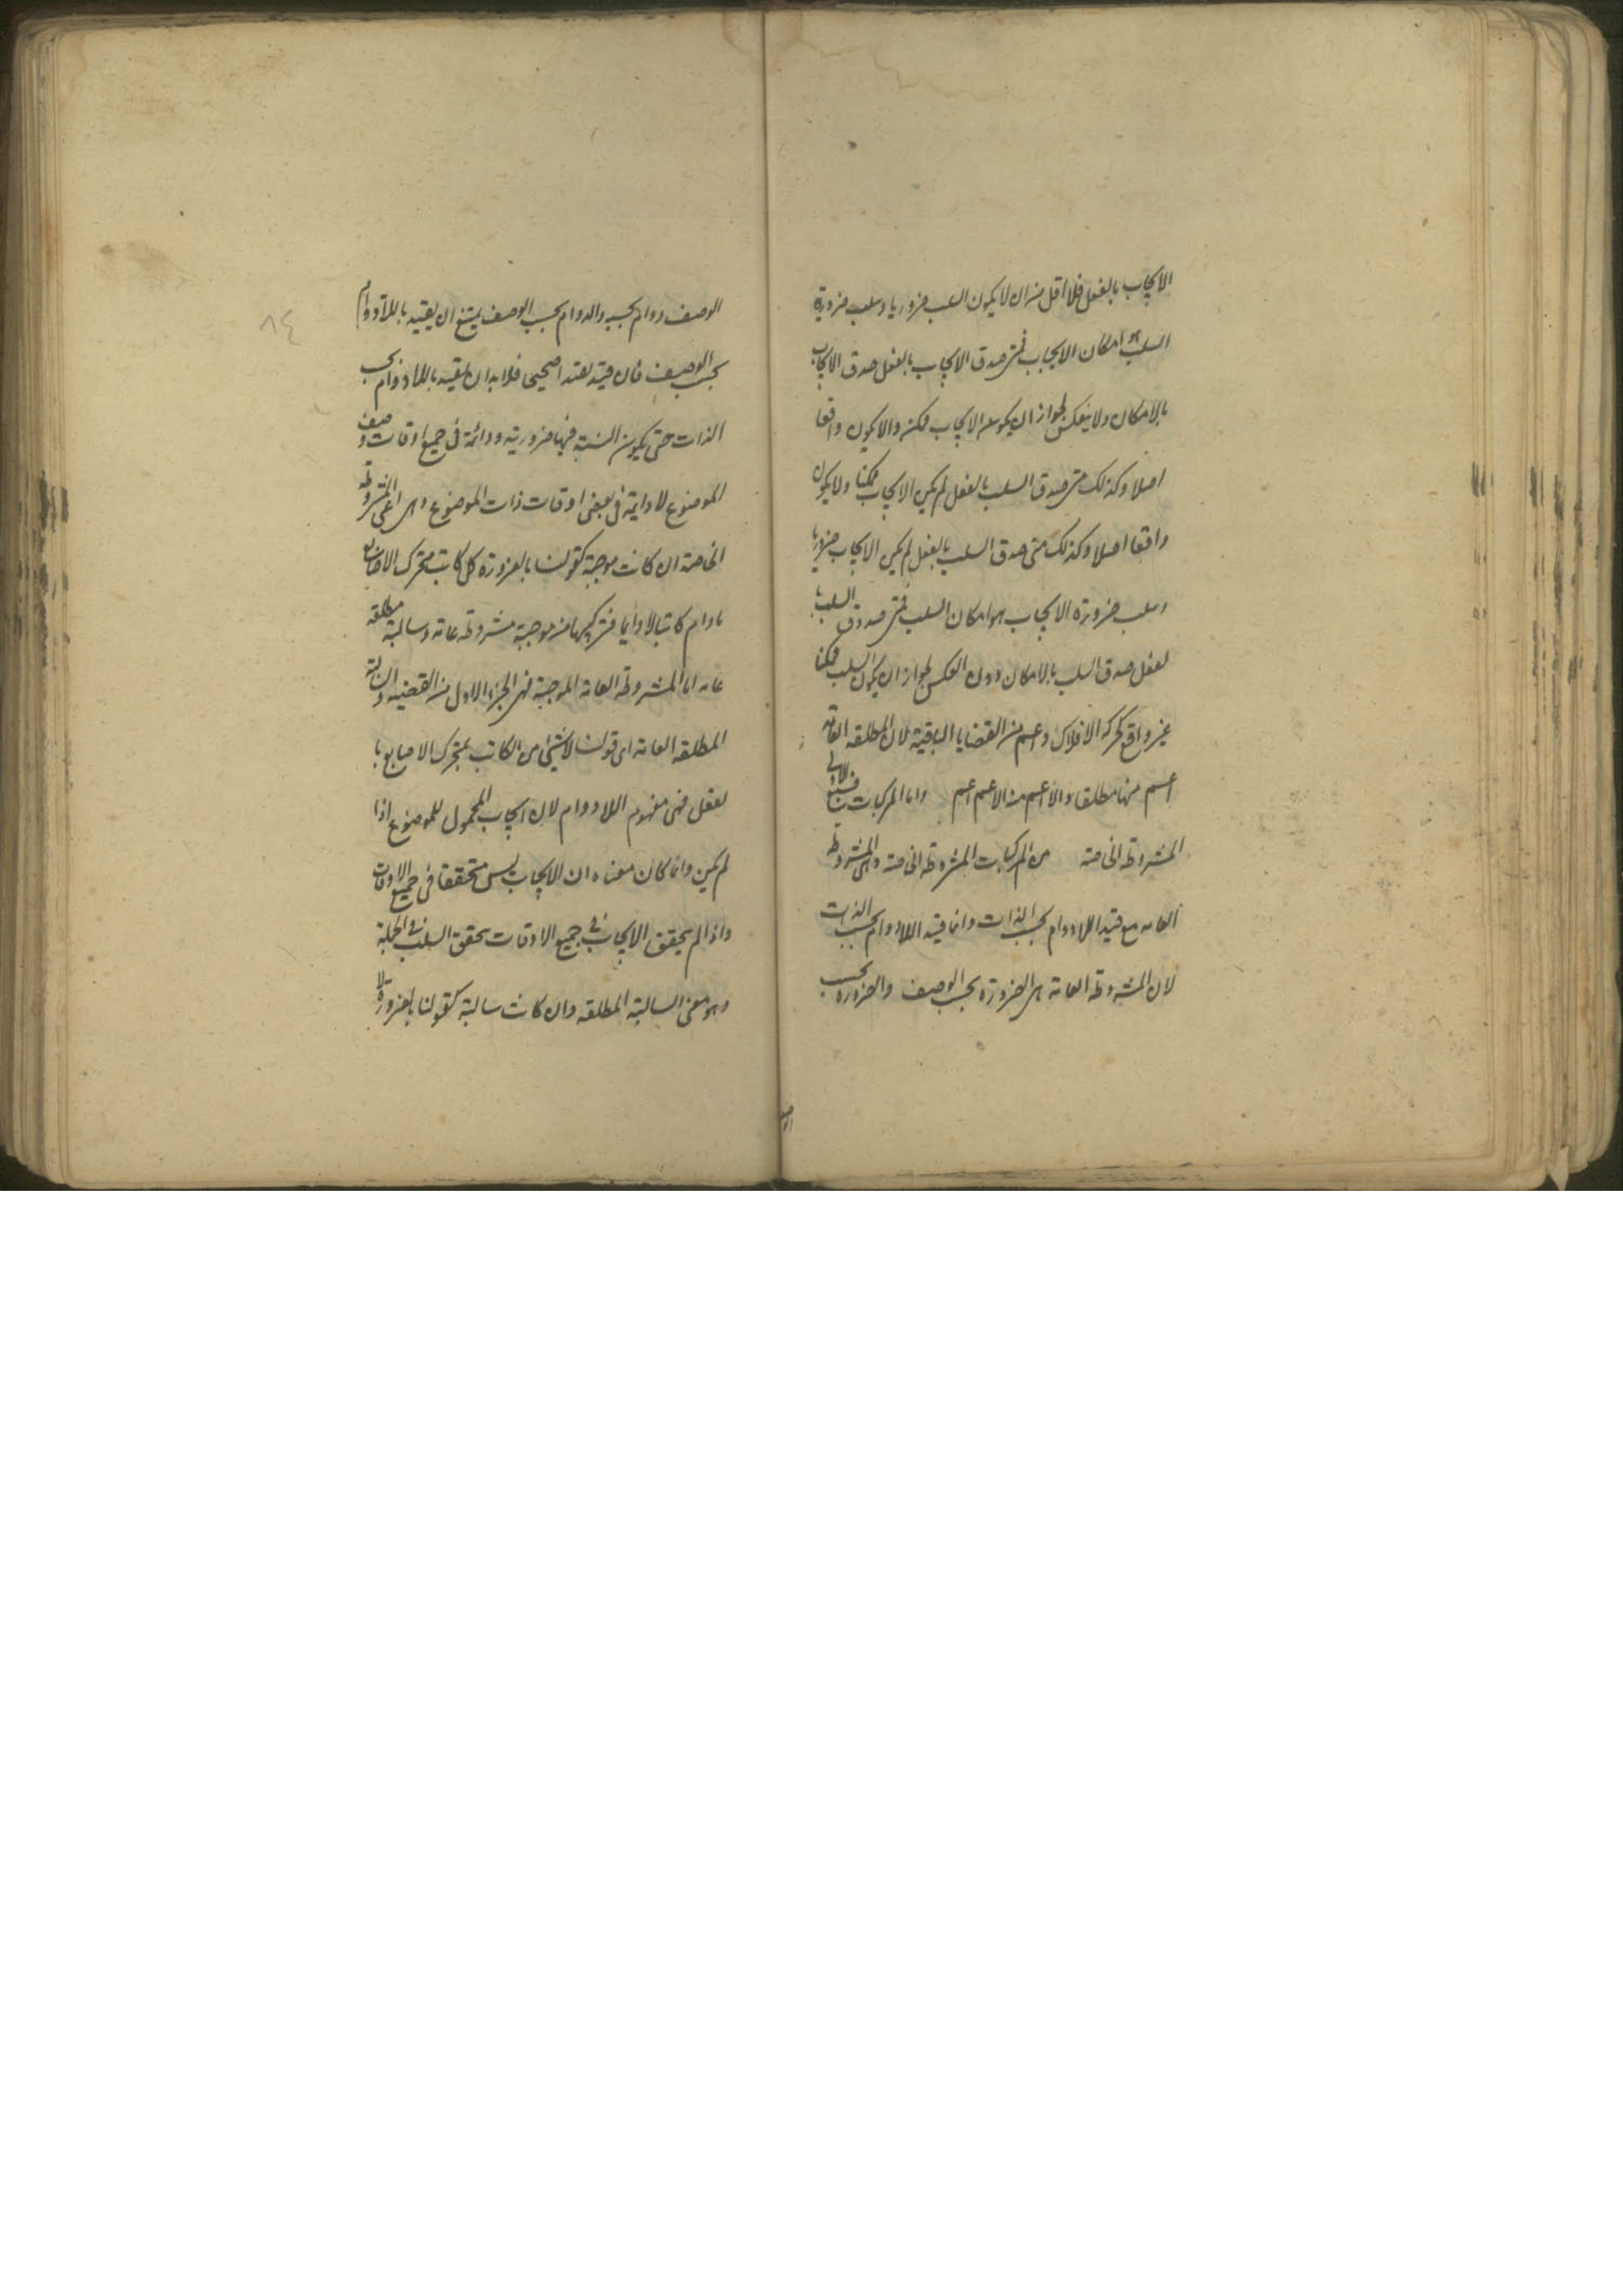 الايجاب بالفعل فلا اقل من ان لا يكون السلب ضروريا وسلب ضرورية
السلب هو امكان الايجاب فمتى صدق الايجاب بالفعل صدق الايجاب
بالامكان ولا ينعكس لجواز ان يكون الايجاب ممكن والا يكون واقعا
اصلا وكذلك متى صدق السلب بالفعل لم يكن الايجاب ممكنا ولا يكون
واقعا اصلا وكذلك متى صدق السلب بالفعل لم يكن الايجاب ضروريا
وسلب ضرورة الايجاب هو امكان السلب فمتى صدق السلب با
لفعل صدق السلب بالامكان دون العكس لجواز ان يكون السلب ممكنا
غير واقع كحركة الافلاك واعم من القضايا الباقية لان المطلقه العامه
اعم منها مطلقا والاعم من الاعم اعم واما المركبات فسبع الاولى
المشروطه الخاصة من المركبات المشروطه الخاصة وهي المشروطه
العامه مع قيد اللادوام بحسب الذات وانما قيد اللادوام بحسب الذات
لان المشروطه العامة هي الضرورة بحسب الوصف والضروره بحسب
٨٤
الوصف دوام بحسبه والدوام بحسب الوصف يمتنع ان يقيد باللادوام
بحسب الوصف فان قيد تقييدا صحيحا فلابد ان يقيد باللادوام بحسب
الذات حتى يكون النسبة فيها ضرورية ودائمة في جميع اوقات وصف
الموضوع لا دائمة في بعض اوقات ذات الموضوع وهي اعني المشروطه
الخاصة ان كانت موجبة كقولنا بالضرورة كل كاتب متحرك الاصابع
مادام كاتبا لا دايما فتركيبها من موجبة مشروطه عامة وسالبة مطلقه
عامه اما المشروطه العامة الموجبة فهي الجزء الاول من القضيه والسالبة
المطلقه العامة اى قولنا لا شيئ من الكاتب بمتحرك الاصابع با
لفعل فهى مفهوم اللادوام لان ايجاب المحمول للموضوع اذا
لم يكن دائما كان معناه ان الايجاب ليس متحققا في جميع الاوقات
واذا لم يتحقق الايجاب في جميع الاوقات تحقق السلب في الجملة
وهو معنى السالبة المطلقه وان كانت سالبة كقولنا بالضرورة لا